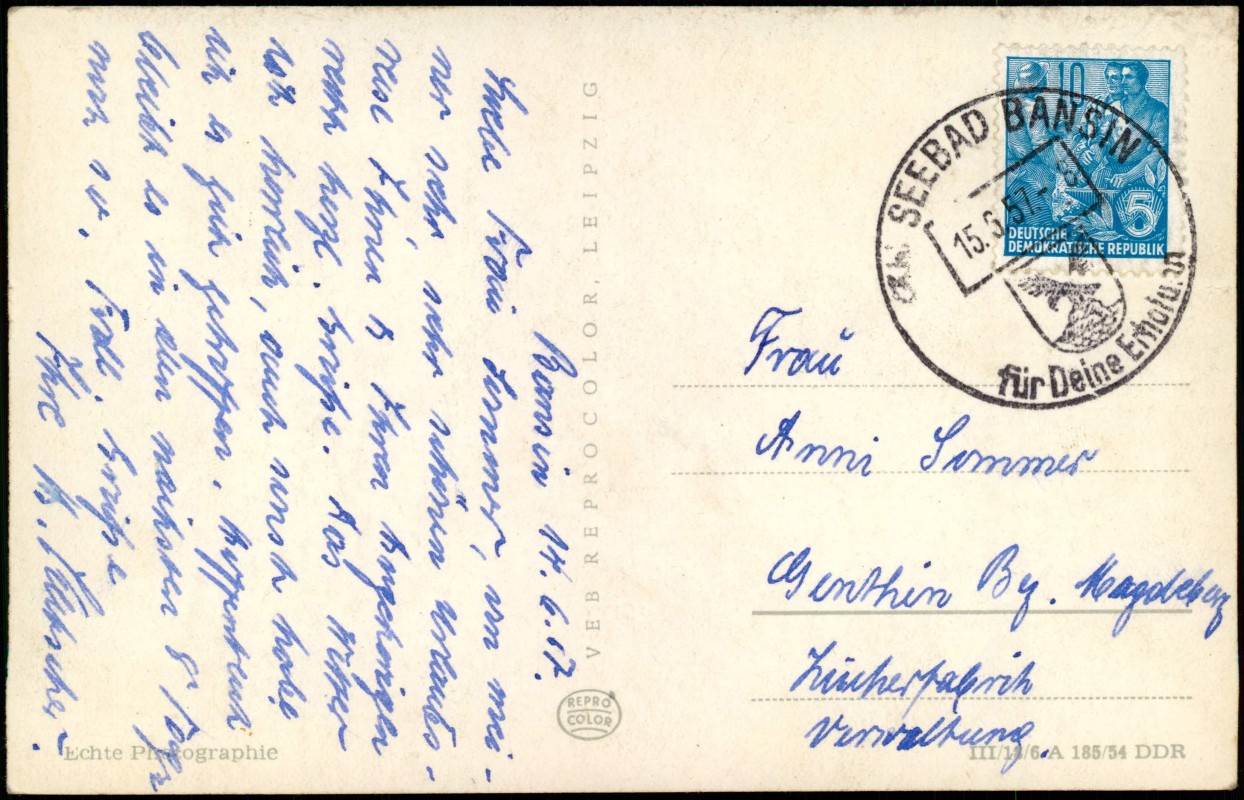 Bansin 14.6.57.
Liebe Frau Sommer, von mei-
ner sehr, sehr schönen Urlaubs-
reise Ihnen & Ihren Angehörigen
recht herzl. Grüße. Das Wetter
ist herrlich, auch sonst habe
ich es gut getroffen. Hoffentlich
bleibt es in den nächsten 8 Tagen
noch so. Frdl. Grüße
Ihre
VEB REPROCOLOR, LEIPZIG
REPRO
COLOR
Echte Photographie
10
5
DEUTSCHE
DEMOKRATISCHE REPUBLIK
SEEBAD BANSIN
15.6.57.-8
für Deine Erholung
Frau
Anni Sommer
Genthin Bz. Magdeburg
Zuckerfabrik
Verwaltung.
III/18/6 A 185/54 DDR